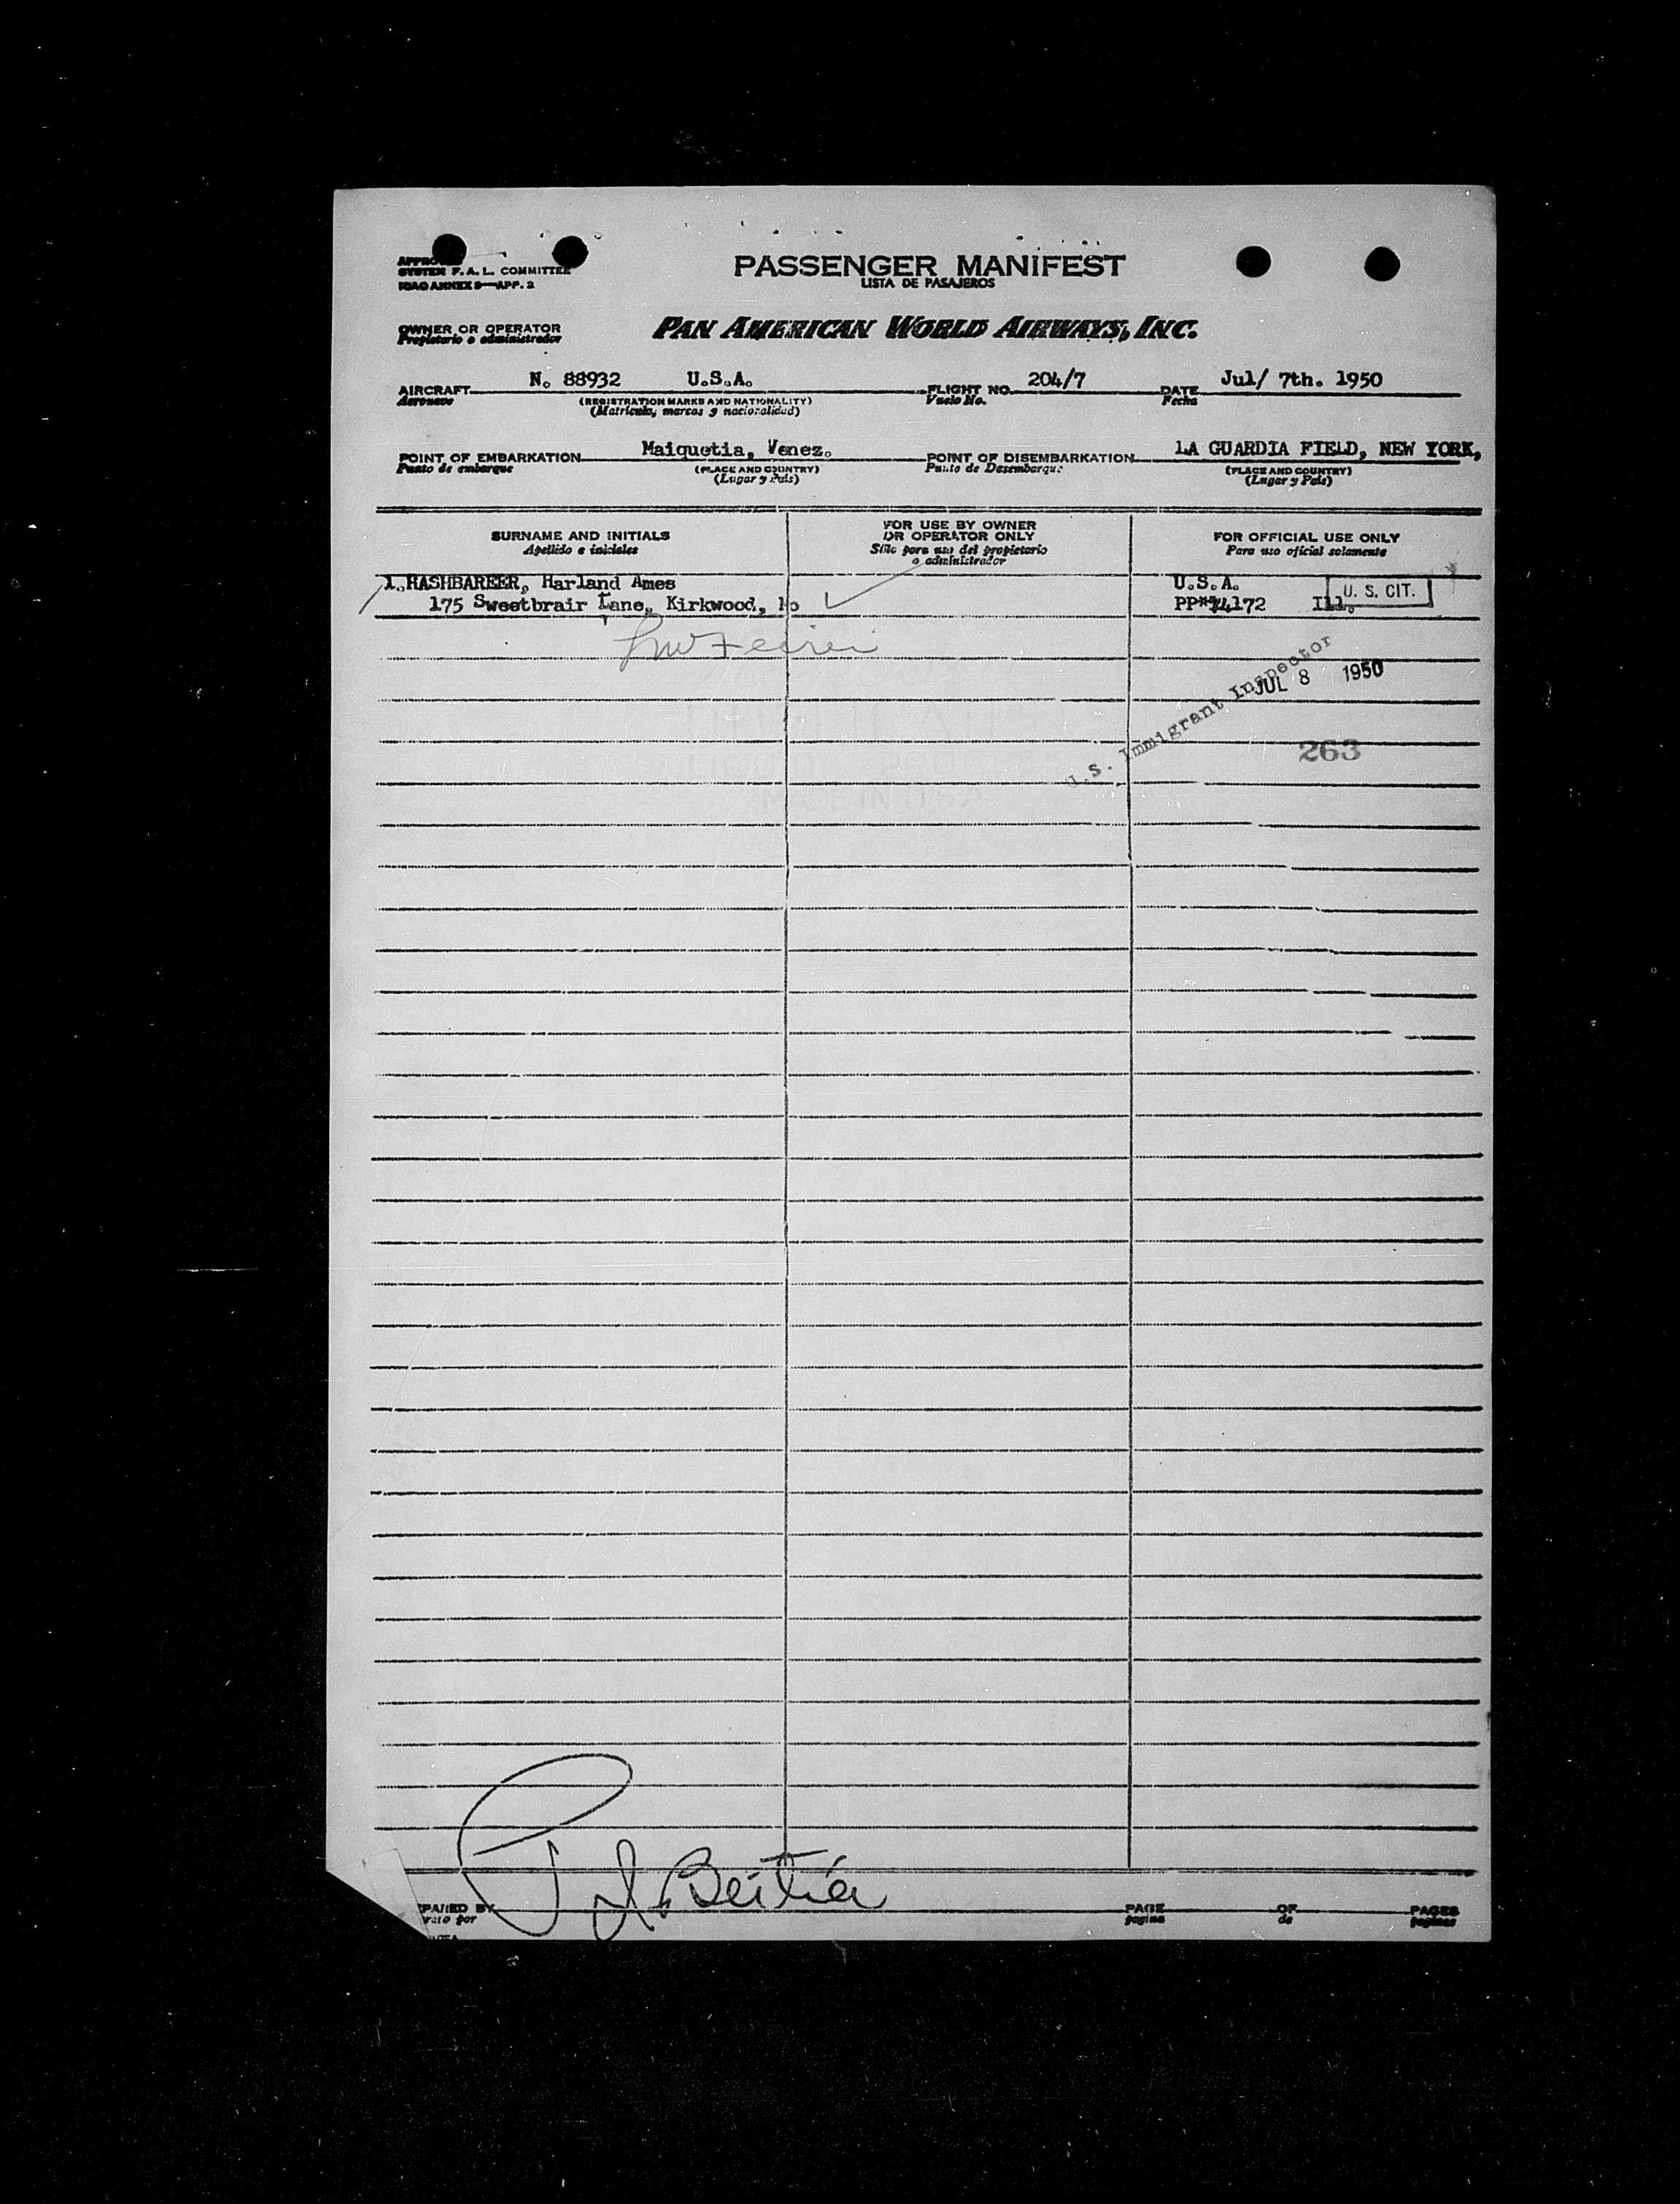 APPROVED
SYSTEM F. A. L. COMMITTEE
ICAO ANNEX 9—APP. 2
PASSENGER MANIFEST
LISTA DE PASAJEROS
OWNER OR OPERATOR
Propietario o administrador
PAN AMERICAN WORLD AIRWAYS, INC.
AIRCRAFT N. 88932 U.S.A. FLIGHT NO. 204/7 DATE Jul/ 7th. 1950
Aeronave (REGISTRATION MARKS AND NATIONALITY) Vuelo No. Fecha
(Matricula, marcas y nacionalidad)
POINT OF EMBARKATION Maiquetia, Venez. POINT OF DISEMBARKATION LA GUARDIA FIELD, NEW YORK,
Punto de embarque (PLACE AND COUNTRY) Punto de Desembarque (PLACE AND COUNTRY)
(Lugar y Pais) (Lugar y Pais)
SURNAME AND INITIALS
Apellido e iniciales
FOR USE BY OWNER
OR OPERATOR ONLY
Sólo para uso del propietario
o administrador
FOR OFFICIAL USE ONLY
Para uso oficial solamente
1. HASHBAREER, Harland Ames U.S.A.
175 Sweetbrair Lane, Kirkwood, Mo PP# 172 Ill.
U. S. CIT.
U.S. Immigrant Inspector
JUL 8 1950
263
MADE IN U.S.A.
Beitía
PARED BY PAGE OF PAGES
rato por pagina de paginas